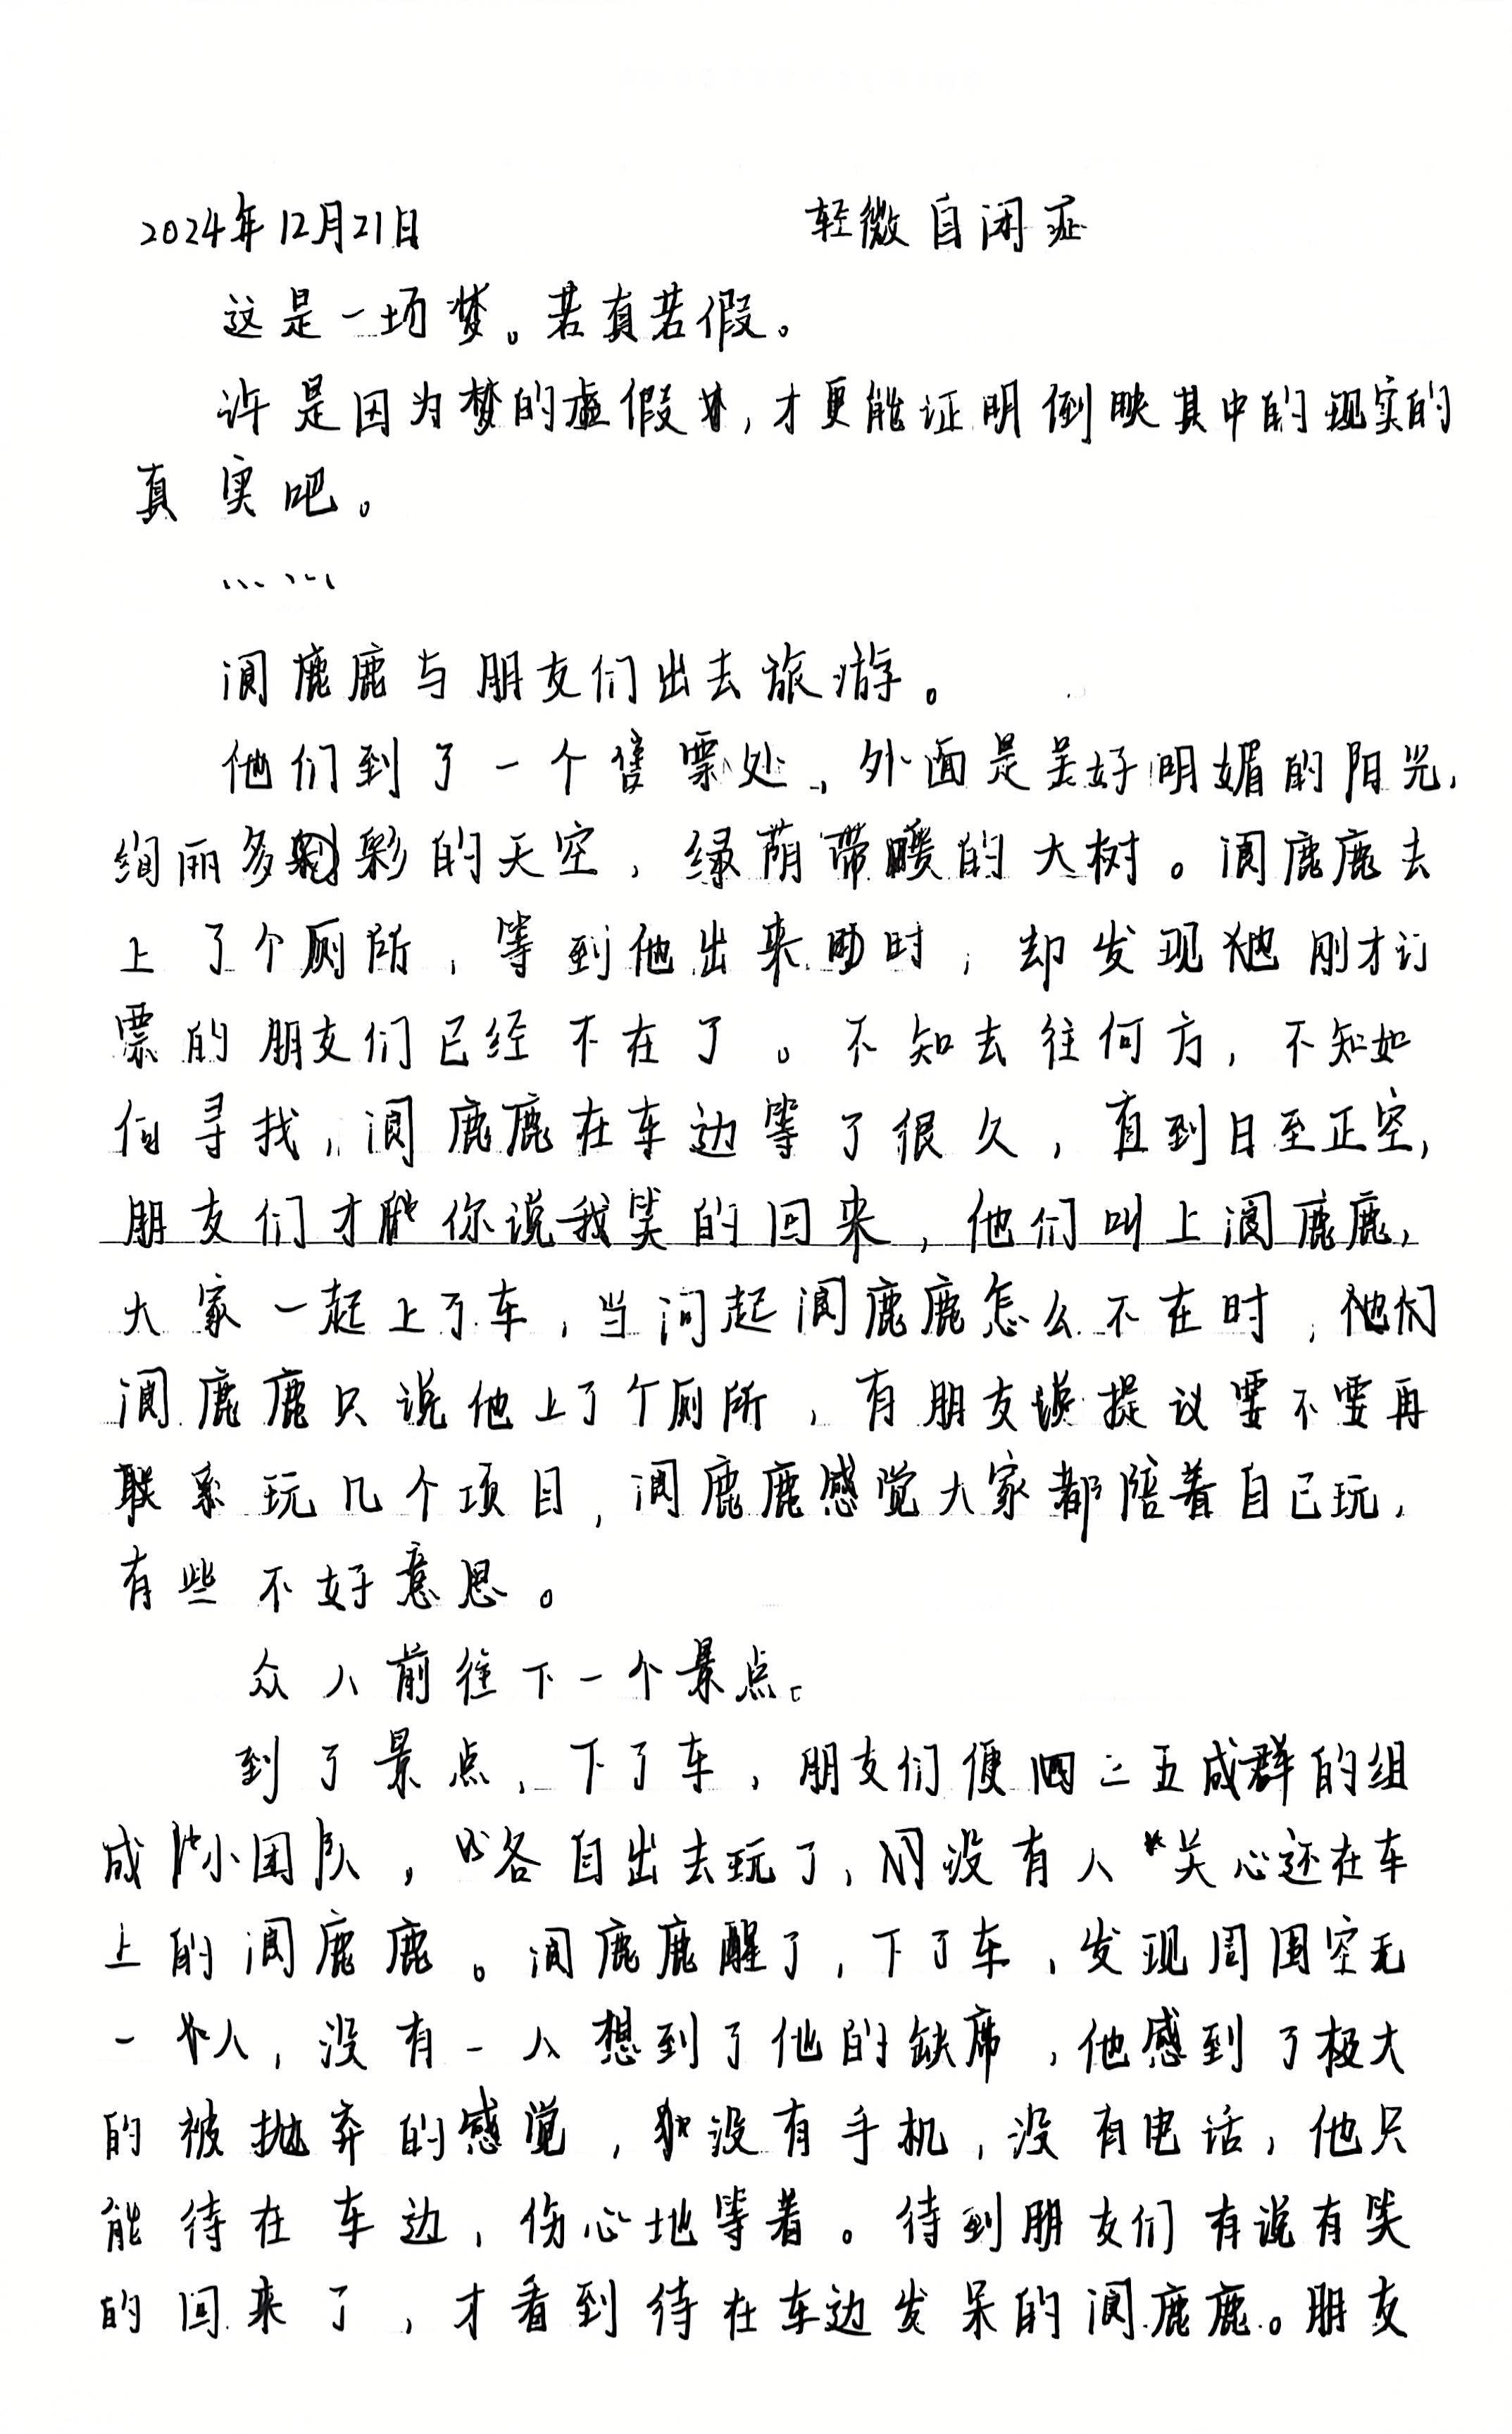 2024年12月21日 轻微自闭症
这是一场梦。若真若假。
许是因为梦的虚假,才更能证明倒映其中的现实的
真实吧。
……
阆鹿鹿与朋友们出去旅游。
他们到了一个售票处,外面是美好明媚的阳光,
绚丽多彩的天空,绿荫带暖的大树。阆鹿鹿去
上了个厕所,等到他出来时,却发现他刚才订
票的朋友们已经不在了。不知去往何方,不知如
何寻找,阆鹿鹿在车边等了很久,直到日至正空,
朋友们才你说我笑的回来,他们叫上阆鹿鹿,
大家一起上了车,当问起阆鹿鹿怎么不在时,
阆鹿鹿只说他上了个厕所,有朋友提议要不要再
联系玩几个项目,阆鹿鹿感觉大家都陪着自己玩,
有些不好意思。
众人前往下一个景点。
到了景点,下了车,朋友们便三五成群的组
成小团队,各自出去玩了,没有人关心还在车
上的阆鹿鹿。阆鹿鹿醒了,下了车,发现周围空无
一人,没有一人想到了他的缺席,他感到了极大
的被抛弃的感觉,没有手机,没有电话,他只
能待在车边,伤心地等着。待到朋友们有说有笑
的回来了,才看到待在车边发呆的阆鹿鹿。朋友